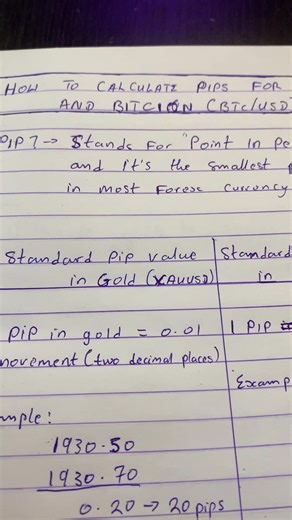 HOW TO CALCULATE PIPS FOR
AND BITCION (BTC/USD)
PIP? → Stands For "Point In Pe
and it's the smallest
in most Forex currency
Standard Pip value
in Gold (XAUUSD)
Standard
in
PiP in gold = 0.01
movement (two decimal places)
1 PIP
Examp
mple:
1930.50
1930.70
0.20 → 20 pips